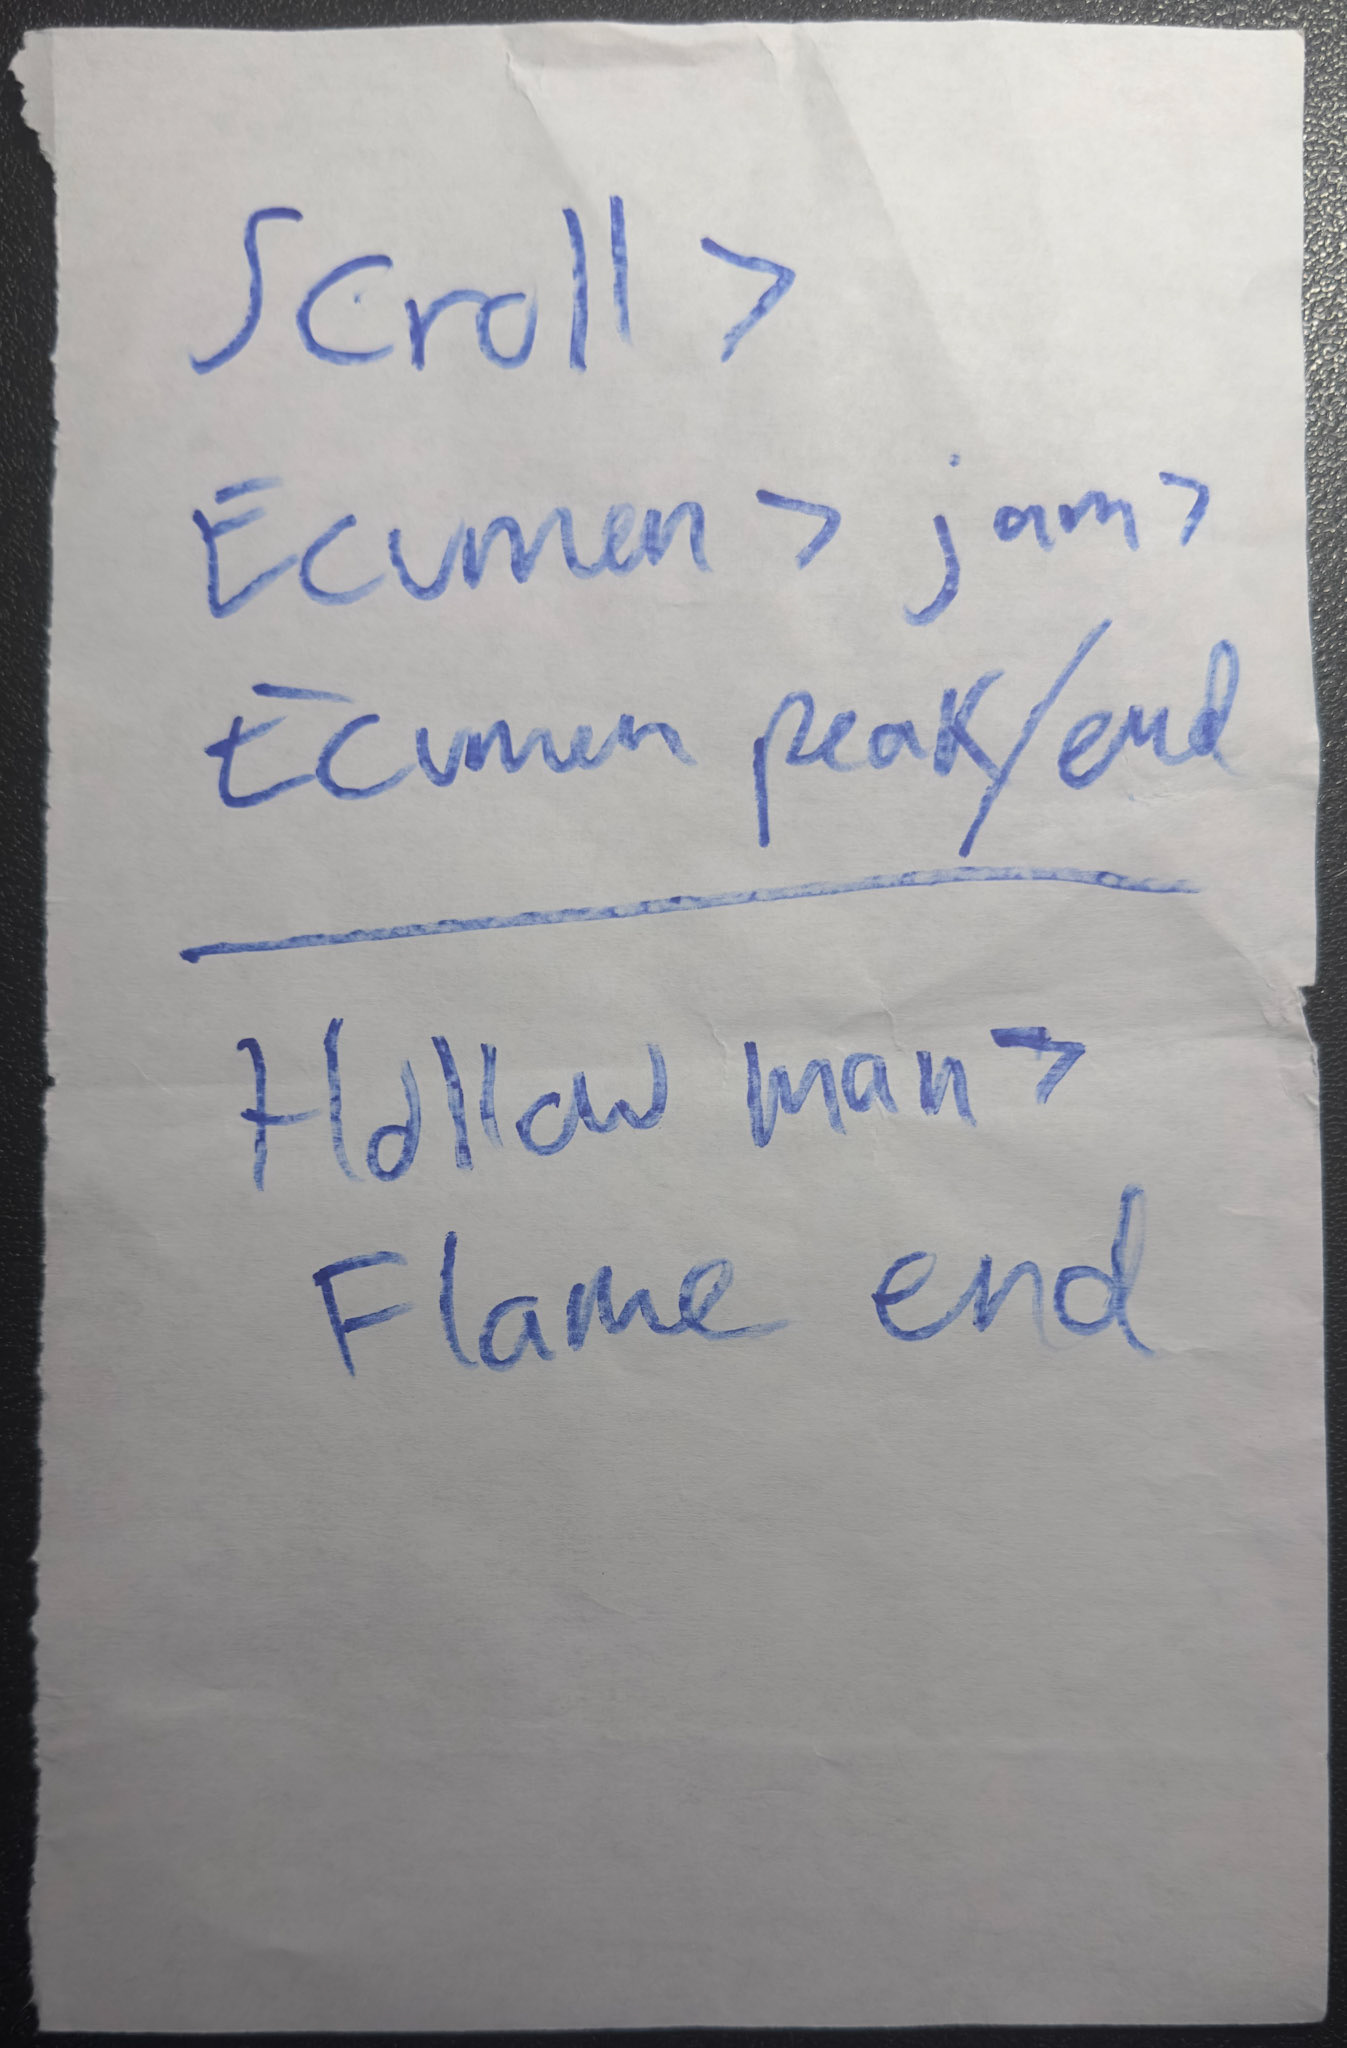 Scroll >
Ecumen > jam >
Ecumen peak/end
Hollow man >
Flame end